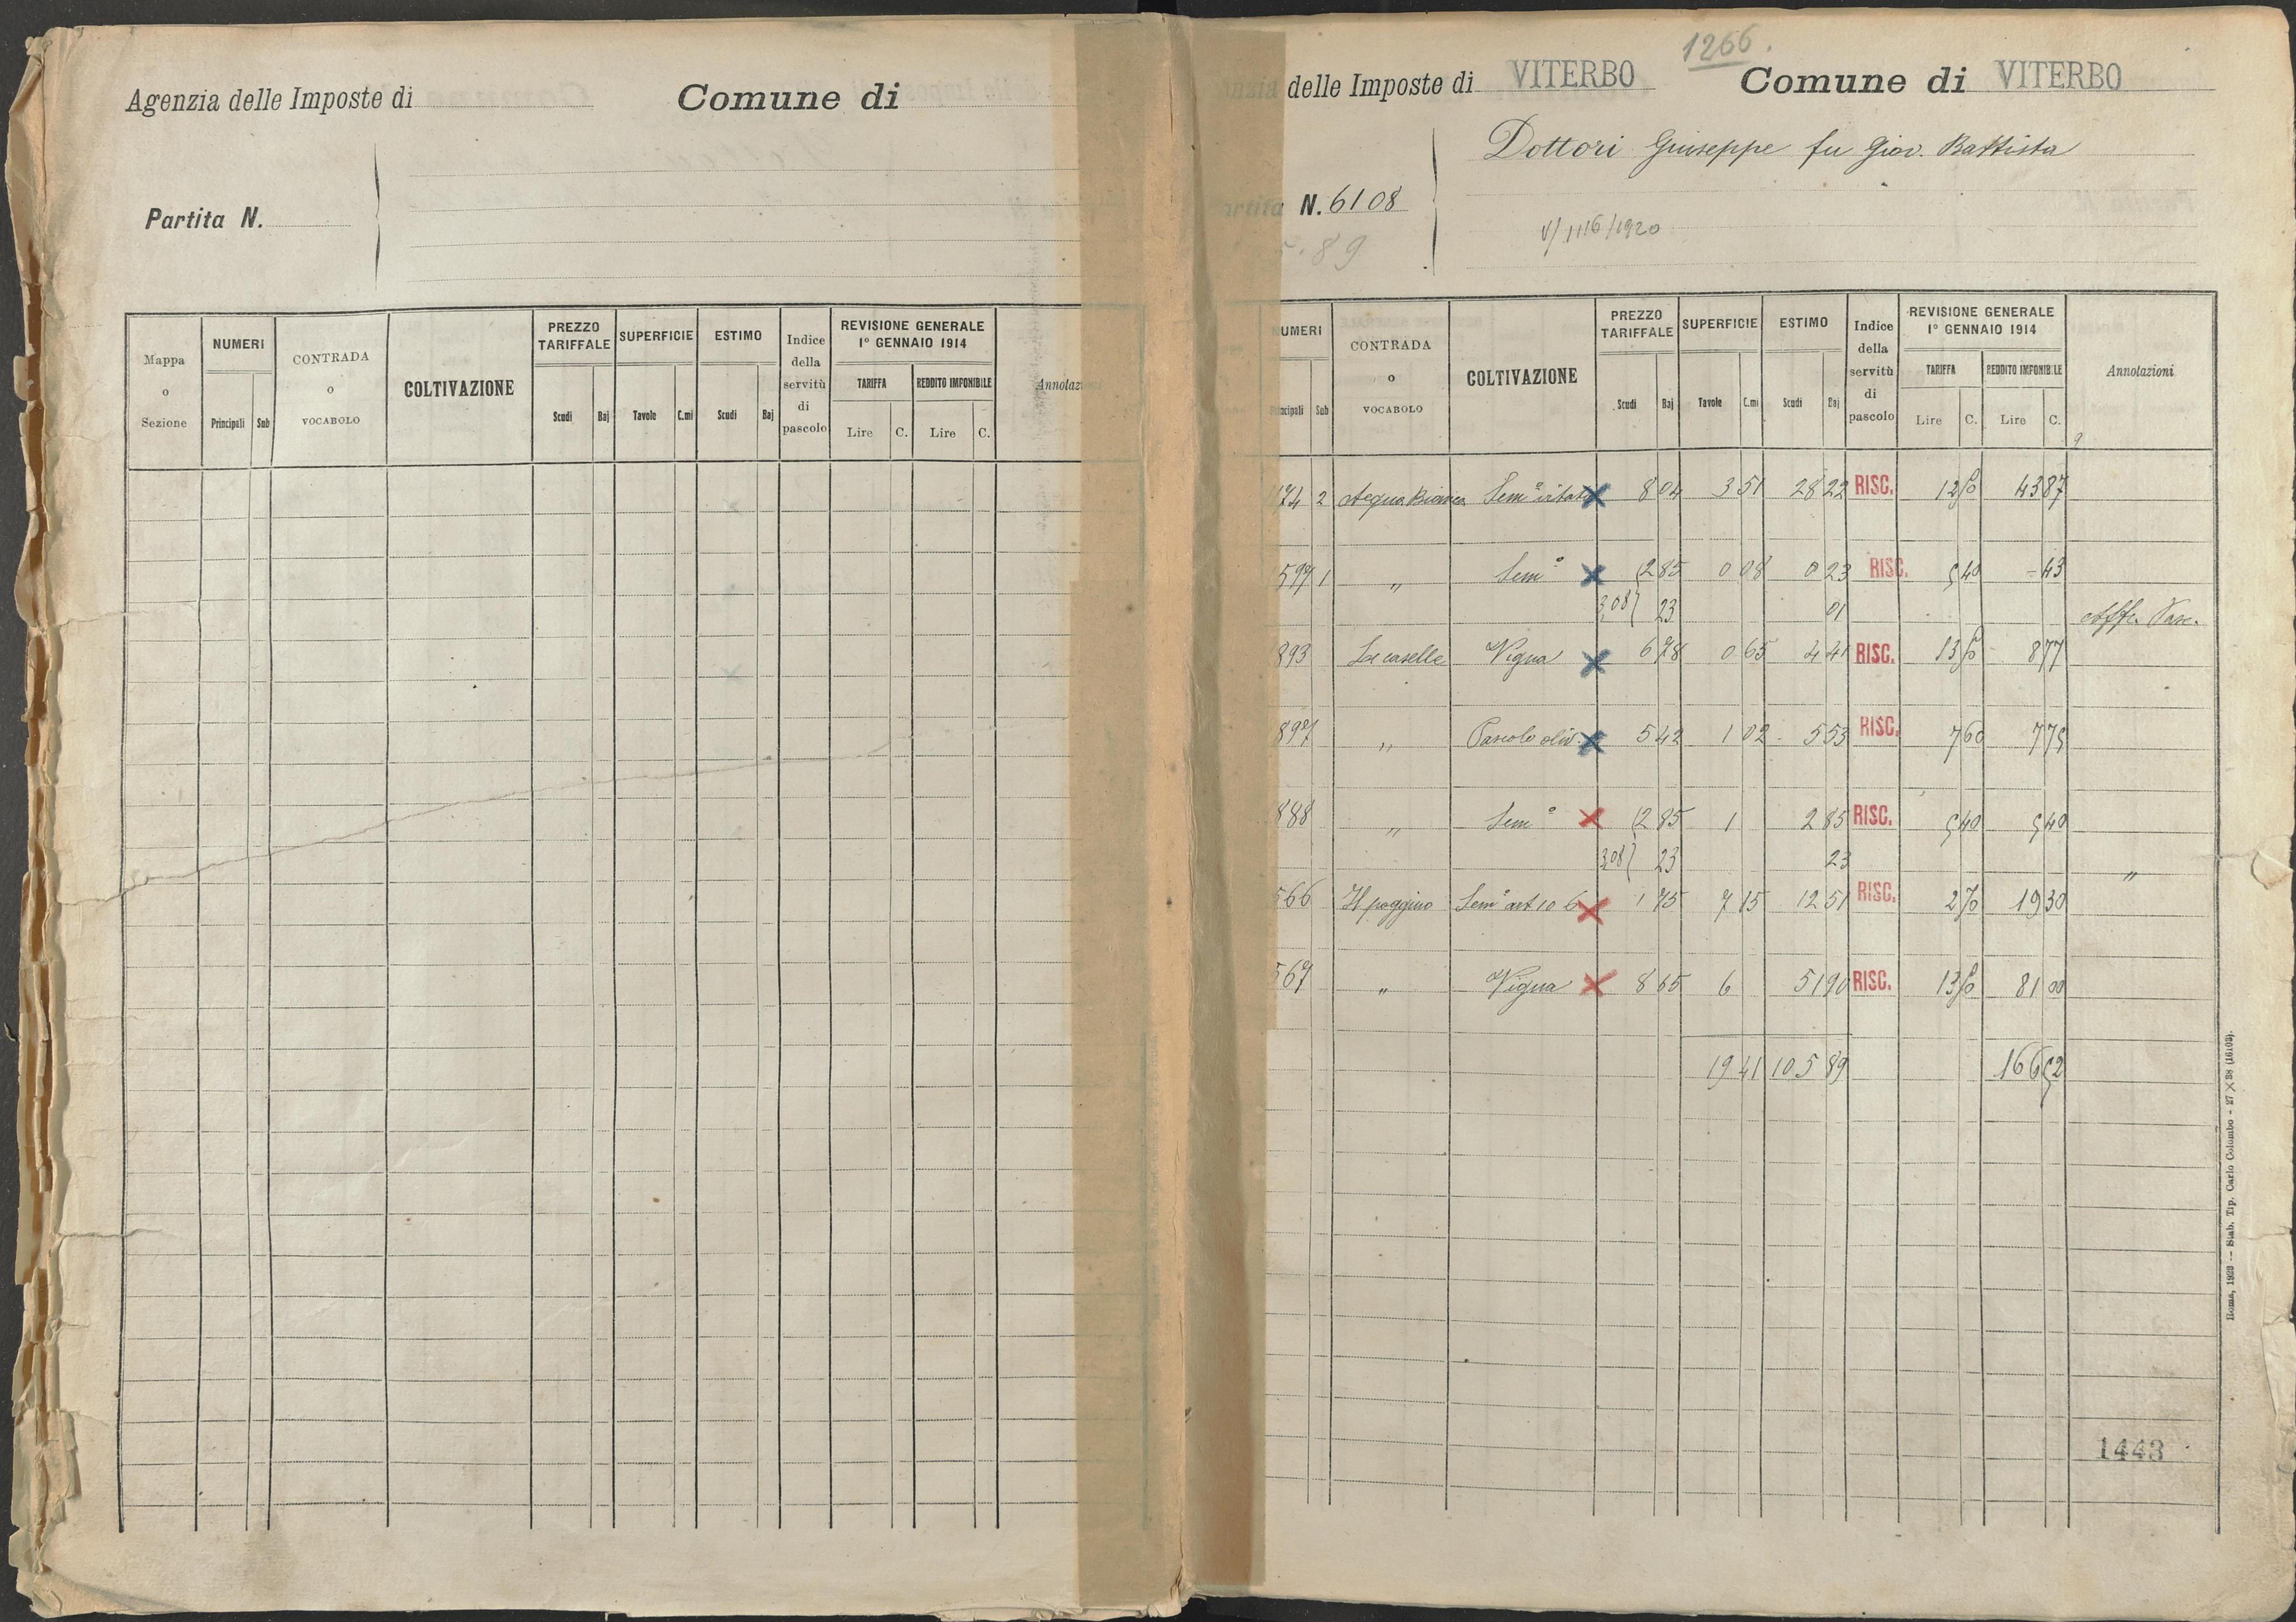 Agenzia delle Imposte di Comune di
Partita N.
Mappa o Sezione NUMERI Principali Sub CONTRADA o VOCABOLO COLTIVAZIONE PREZZO TARIFFALE Scudi Baj SUPERFICIE Tavole C.mi ESTIMO Scudi Baj Indice della servitù di pascolo REVISIONE GENERALE 1° GENNAIO 1914 TARIFFA Lire C. REDDITO IMPONIBILE Lire C. Annotazioni
1266.
delle Imposte di VITERBO Comune di VITERBO
Dottori Giuseppe fu Giov. Battista
Partita N. 6108
V/1116/1920
89
NUMERI Principali Sub CONTRADA o VOCABOLO COLTIVAZIONE PREZZO TARIFFALE Scudi Baj SUPERFICIE Tavole C.mi ESTIMO Scudi Baj Indice della servitù di pascolo REVISIONE GENERALE 1° GENNAIO 1914 TARIFFA Lire C. REDDITO IMPONIBILE Lire C. Annotazioni
174 2 Acqua Bianca Sem° vitato 8 04 3 51 28 22 RISC. 12 50 43 87
597 1 " Sem° 2 85 0 08 0 23 RISC. 5 40 - 43
3,08 23 01 Affr. Pasc.
893 Le caselle Vigna 6 78 0 65 4 41 RISC. 13 50 8 77
897 " Pascolo oliv. 5 42 1 02 5 53 RISC. 7 60 7 75
888 " Sem° 2 85 1 2 85 RISC. 5 40 5 40
3,08 23 23 "
566 Il poggino Sem° art 10 6 1 75 7 15 12 51 RISC. 2 70 19 30
567 " Vigna 8 65 6 51 90 RISC. 13 50 81 00
19 41 105 89 166 52
1443
Roma, 1923 — Stab. Tip. Carlo Colombo - 27 × 38 (16103).